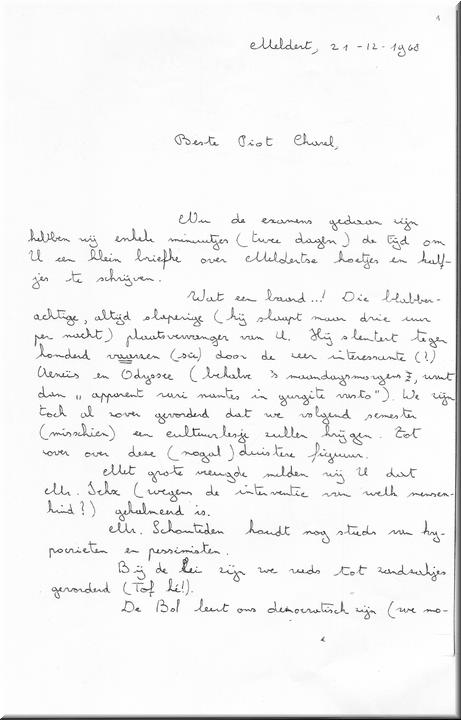 1
Meldert, 21-12-1968
Beste Piot Charel,
Nu de examens gedaan zijn
hebben wij enkele minuutjes (twee dagen) de tijd om
U een klein briefke over Meldertse koetjes en kalf-
jes te schrijven.
Wat een baard...! Die blubber-
achtige, altijd slaperige (hij slaapt maar drie uur
per nacht) plaatsvervanger van U. Hij slentert tegen
honderd vaarsen (sic) door de zeer interessante (?)
Aeneis en Odyssee (behalve 's maandagsmorgens, want
dan „apparent rari nantes in gurgite vasto"). We zijn
toch al zover gevorderd dat we volgend semester
(misschien) een cultuurlesje zullen krijgen. Tot
zover over deze (nogal) duistere figuur.
Met grote vreugde melden wij U dat
Mr. (wegens de interventie van welk mensen-
kind?) gekalmeerd is.
Mr. Schouteden houdt nog steeds van hy-
pocrieten en pessimisten.
Bij de Lei zijn we reeds tot zandzakjes
gevorderd (Tof hé!).
De Bol leert ons democratisch zijn (we mo-